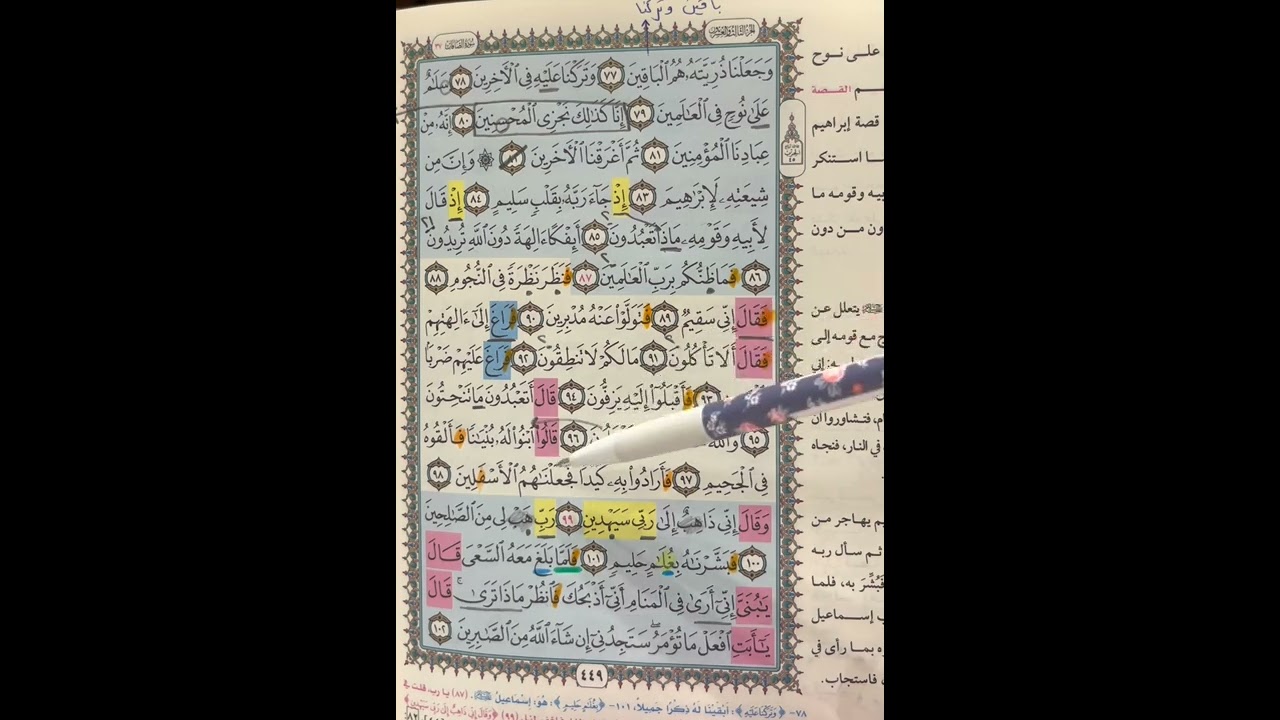 باقين وتركنا
سورة الصافات ٣٧
الجزء الثالث والعشرون
وَجَعَلْنَا ذُرِّيَّتَهُۥ هُمُ ٱلْبَاقِينَ ٧٧ وَتَرَكْنَا عَلَيْهِ فِى ٱلْءَاخِرِينَ ٧٨ سَلَٰمٌ
عَلَىٰ نُوحٍ فِى ٱلْعَٰلَمِينَ ٧٩ إِنَّا كَذَٰلِكَ نَجْزِى ٱلْمُحْسِنِينَ ٨٠ إِنَّهُۥ مِنْ
عِبَادِنَا ٱلْمُؤْمِنِينَ ٨١ ثُمَّ أَغْرَقْنَا ٱلْءَاخَرِينَ ۞ وَإِنَّ مِن
شِيعَتِهِۦ لَإِبْرَٰهِيمَ ٨٣ إِذْ جَآءَ رَبَّهُۥ بِقَلْبٍ سَلِيمٍ ٨٤ إِذْ قَالَ
لِأَبِيهِ وَقَوْمِهِۦ مَاذَا تَعْبُدُونَ ٨٥ أَئِفْكًا ءَالِهَةً دُونَ ٱللَّهِ تُرِيدُونَ
٨٦ فَمَا ظَنُّكُم بِرَبِّ ٱلْعَٰلَمِينَ ٨٧ فَنَظَرَ نَظْرَةً فِى ٱلنُّجُومِ ٨٨
فَقَالَ إِنِّى سَقِيمٌ ٨٩ فَتَوَلَّوْا۟ عَنْهُ مُدْبِرِينَ ٩٠ فَرَاغَ إِلَىٰٓ ءَالِهَتِهِمْ
فَقَالَ أَلَا تَأْكُلُونَ ٩١ مَا لَكُمْ لَا تَنطِقُونَ ٩٢ فَرَاغَ عَلَيْهِمْ ضَرْبًۢا
٩٣ فَأَقْبَلُوٓا۟ إِلَيْهِ يَزِفُّونَ ٩٤ قَالَ أَتَعْبُدُونَ مَا تَنْحِتُونَ
٩٥ وَٱللَّهُ ٩٦ قَالُوا۟ ٱبْنُوا۟ لَهُۥ بُنْيَٰنًا فَأَلْقُوهُ
فِى ٱلْجَحِيمِ ٩٧ فَأَرَادُوا۟ بِهِۦ كَيْدًا فَجَعَلْنَٰهُمُ ٱلْأَسْفَلِينَ ٩٨
وَقَالَ إِنِّى ذَاهِبٌ إِلَىٰ رَبِّى سَيَهْدِينِ ٩٩ رَبِّ هَبْ لِى مِنَ ٱلصَّٰلِحِينَ
١٠٠ فَبَشَّرْنَٰهُ بِغُلَٰمٍ حَلِيمٍ ١٠١ فَلَمَّا بَلَغَ مَعَهُ ٱلسَّعْىَ قَالَ
يَٰبُنَىَّ إِنِّىٓ أَرَىٰ فِى ٱلْمَنَامِ أَنِّىٓ أَذْبَحُكَ فَٱنظُرْ مَاذَا تَرَىٰ ۚ قَالَ
يَٰٓأَبَتِ ٱفْعَلْ مَا تُؤْمَرُ ۖ سَتَجِدُنِىٓ إِن شَآءَ ٱللَّهُ مِنَ ٱلصَّٰبِرِينَ ١٠٢
٤٤٩
٧٨- ﴿وَتَرَكْنَا عَلَيْهِ﴾: أَبْقَيْنَا لَهُ ذِكْرًا جَمِيلاً، ١٠١- ﴿بِغُلَامٍ حَلِيمٍ﴾: هُوَ: إِسْمَاعِيلُ
على نوح
القصة
قصة إبراهيم
ـا استنكر
ـيه وقومه ما
ـون من دون
يتعلل عن
ـج مع قومه إلى
ـام، فتشاوروا أن
في النار، فنجاه
ـيم يهاجر من
ثم سأل ربه
فبُشِّرَ به، فلما
ـب إسماعيل
ـره بما رأى في
فاستجاب.